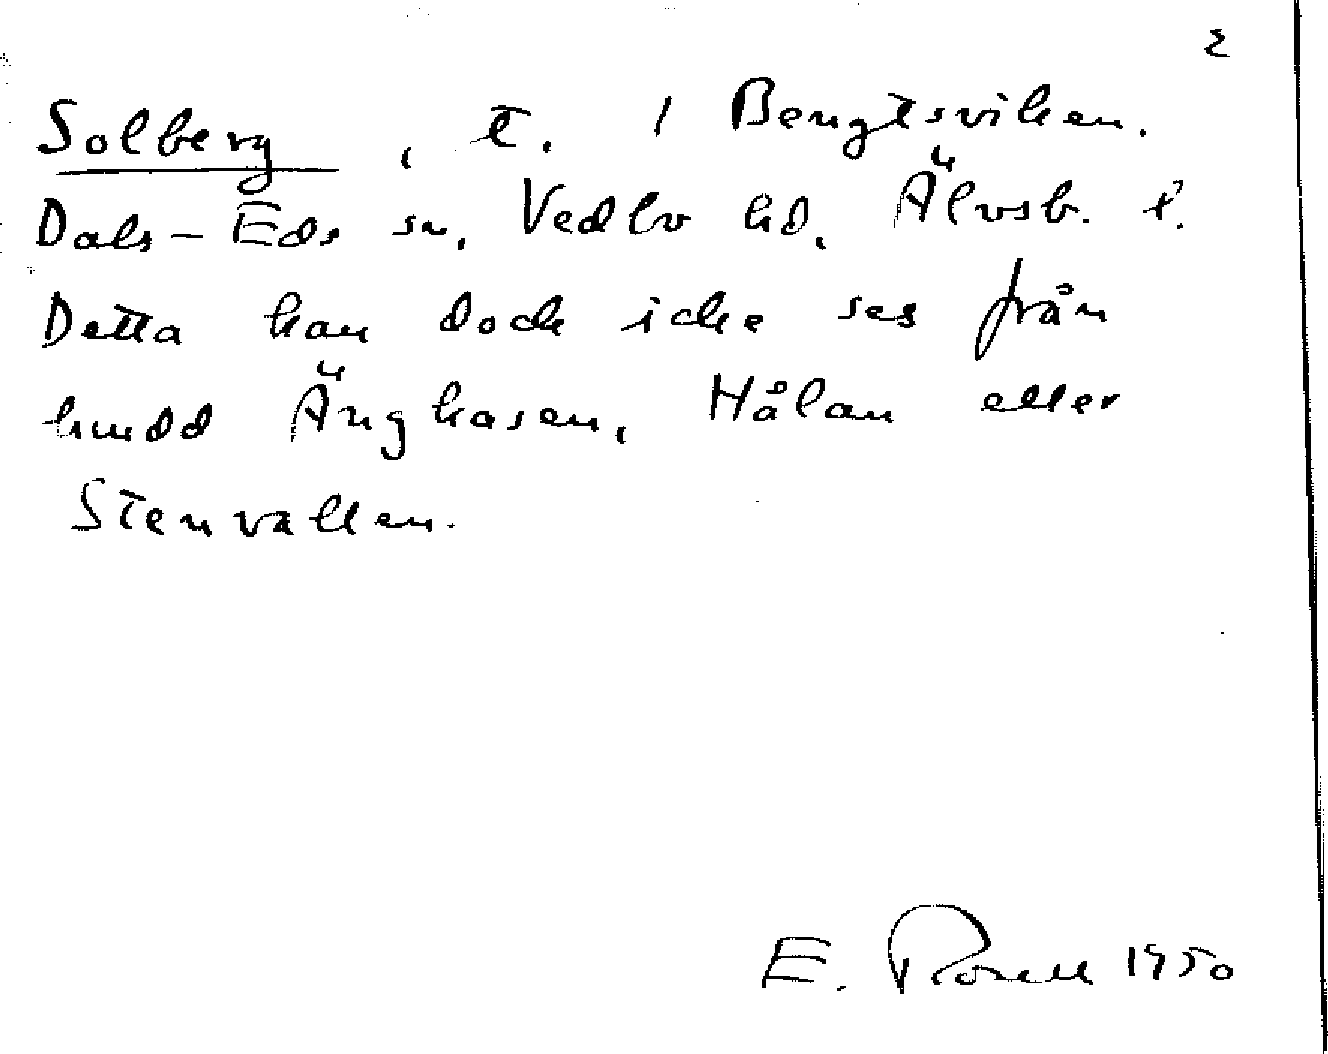 2
Solberg, t. / Bengtsviken.
Dals-Eds sn, Vedbo hd, Älvsb. l.
Detta kan dock icke ses från
Ängkasen, Hålan eller
Stenvallen.
E. 1950